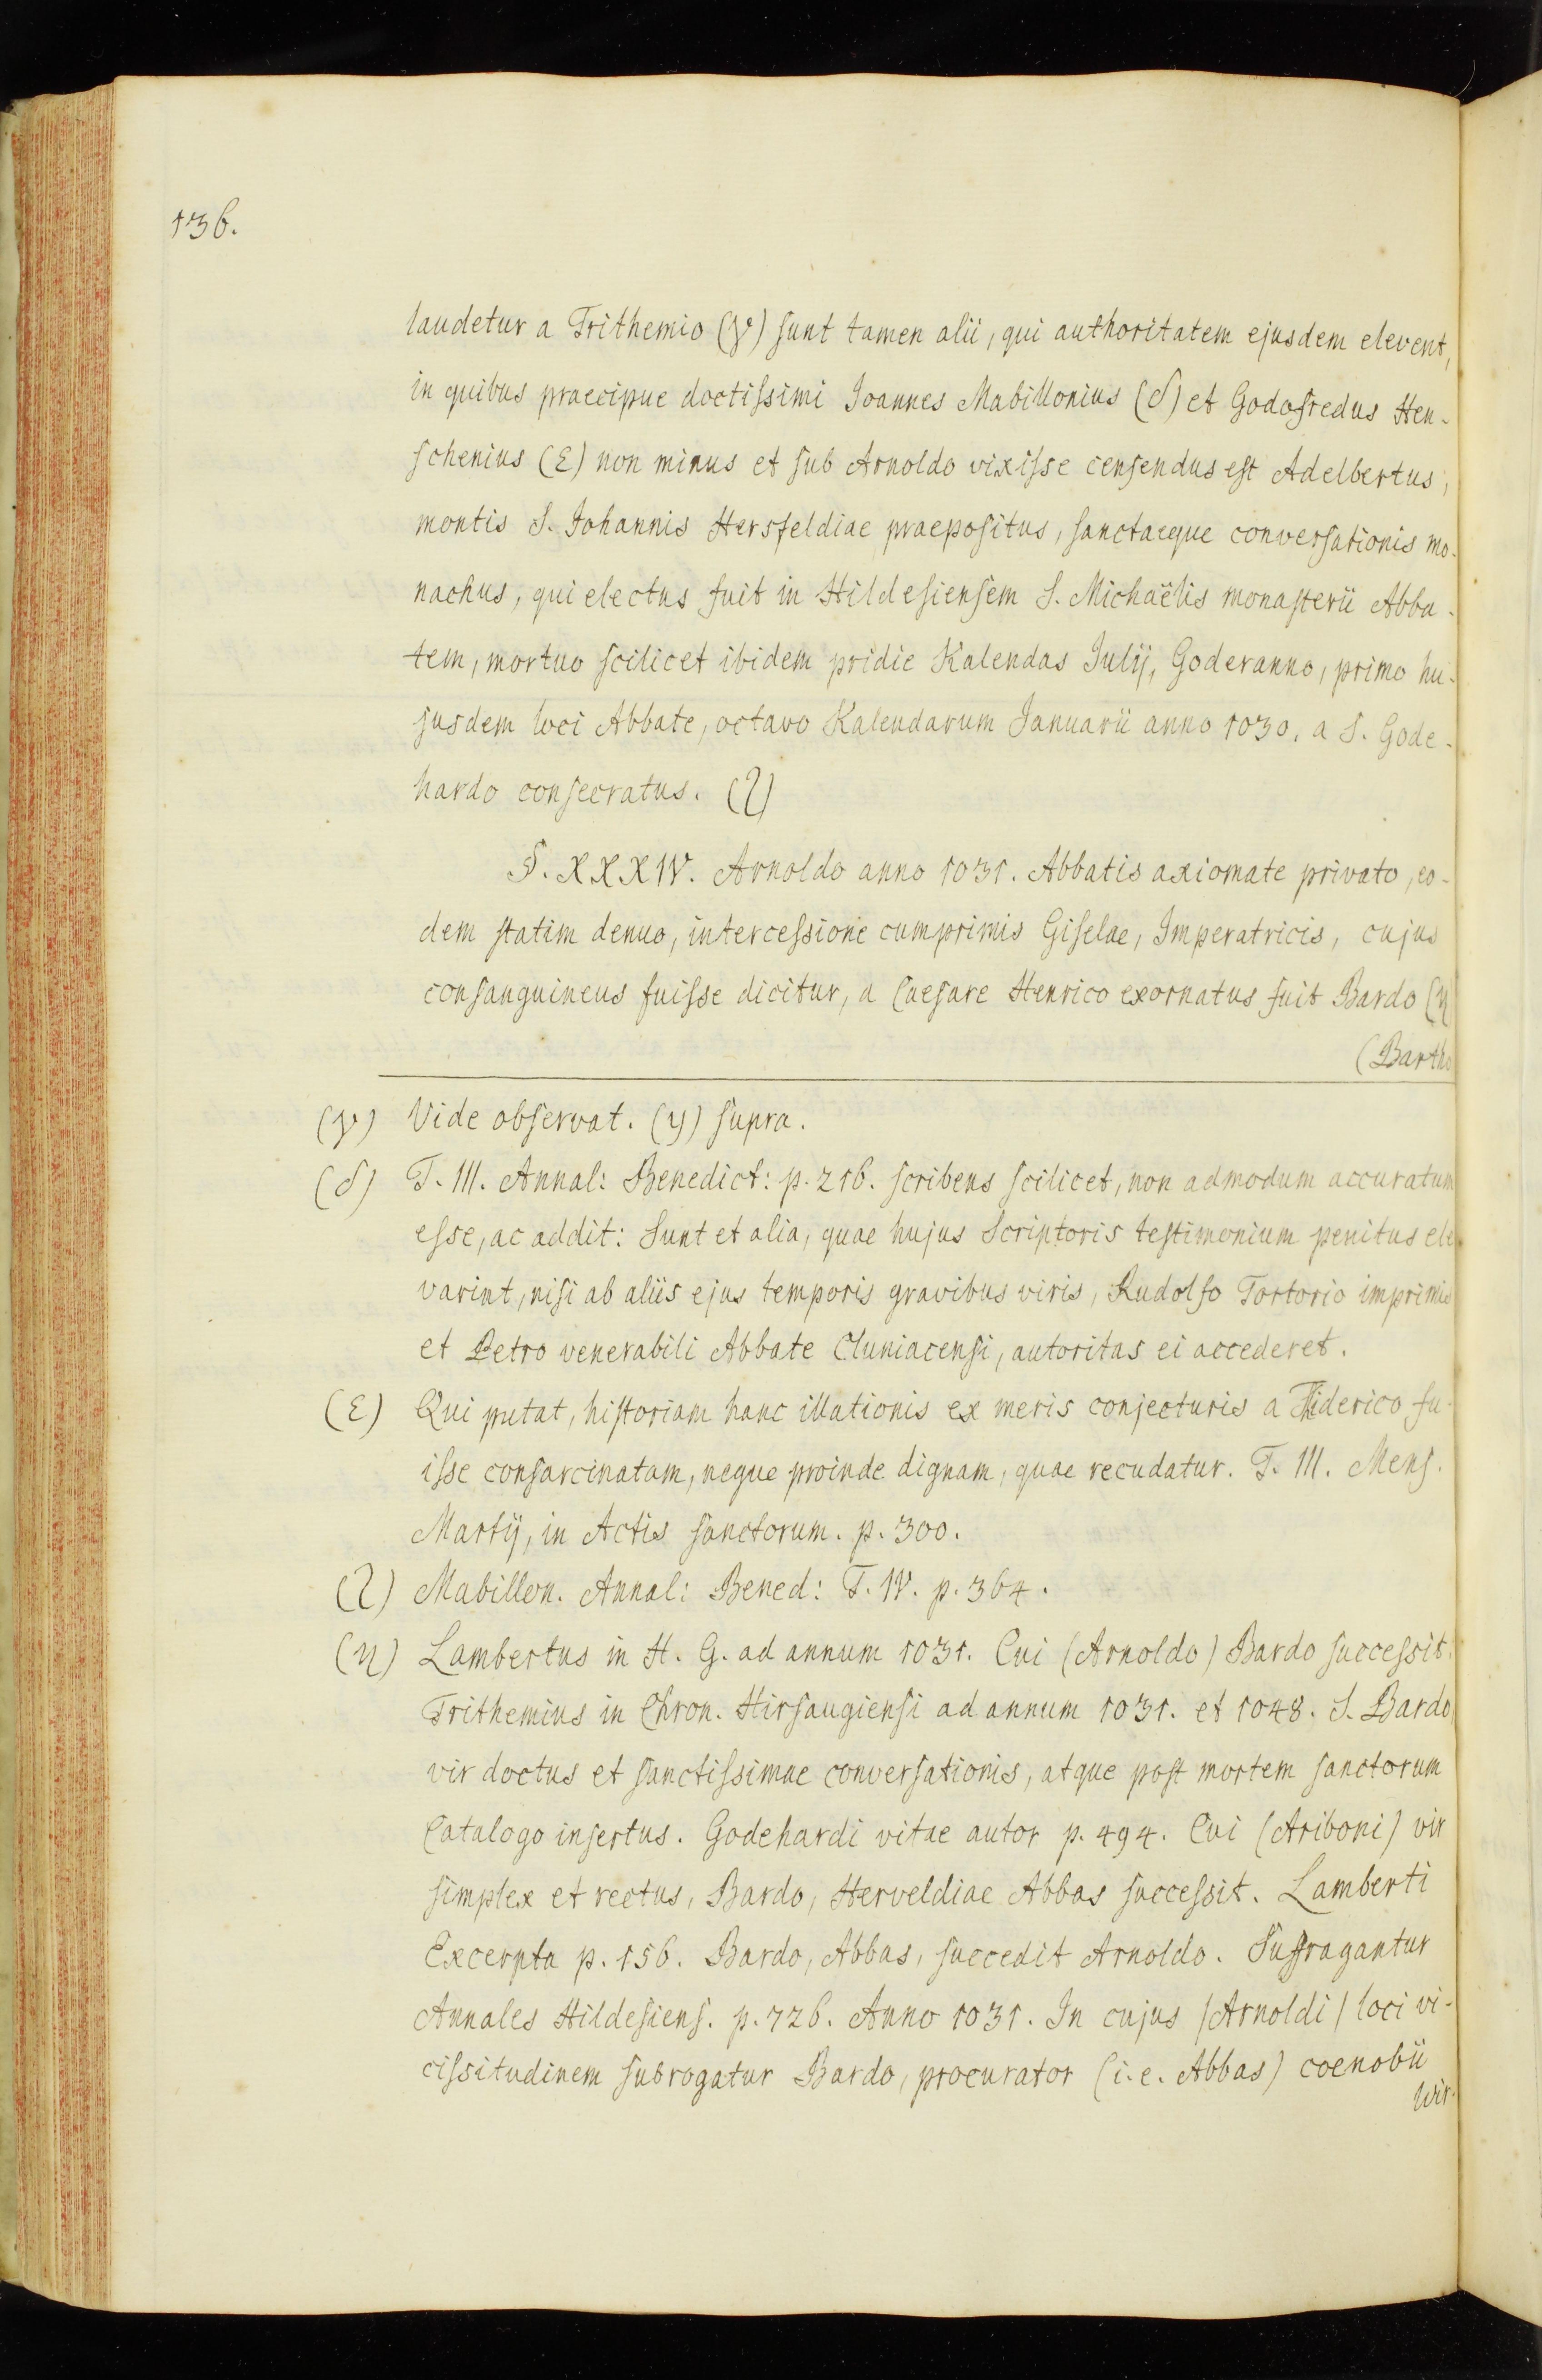 136.
laudetur a Trithemio (γ) sunt tamen alii, qui authoritatem ejusdem elevent,
in quibus praecipue doctissimi Joannes Mabillonius (δ) et Godofredus Hen-
schenius (ε) non minus et sub Arnoldo vixisse censendus est Adelbertus,
montis S. Johannis Hersfeldiae praepositus, sanctaeque conversationis mo-
nachus, qui electus fuit in Hildesiensem S. Michaëlis monasterii Abba-
tem, mortuo scilicet ibidem pridie Kalendas Julij, Goderanno, primo hu-
jusdem loci Abbate, octavo Kalendarum Januarii anno 1030. a S. Gode-
hardo consecratus. (ζ)
§. XXXIV. Arnoldo anno 1031. Abbatis axiomate privato, eo-
dem statim denuo, intercessione cumprimis Giselae, Imperatricis, cujus
consanguineus fuisse dicitur, a Caesare Henrico exornatus fuit Bardo (η
(Bartho
(γ) Vide observat. (y) supra.
(δ) T. III. Annal: Benedict: p. 216. scribens scilicet, non admodum accuratum
esse, ac addit: Sunt et alia, quae hujus Scriptoris testimonium penitus ele
varint, nisi ab aliis ejus temporis gravibus viris, Rudolfo Tortorio imprimis
et Petro venerabili Abbate Cluniacensi, autoritas ei accederet.
(ε) Qui putat, historiam hanc illationis ex meris conjecturis a Tiderico fu-
isse consarcinatam, neque proinde dignam, quae recudatur. T. III. Mens.
Martij, in Actis sanctorum. p. 300.
(ζ) Mabillon. Annal: Bened: T. IV. p. 364.
(η) Lambertus in H. G. ad annum 1031. Cui (Arnoldo) Bardo successit.
Trithemius in Chron. Hirsaugiensi ad annum 1031. et 1048. S. Bardo,
vir doctus et sanctissimae conversationis, atque post mortem sanctorum
Catalogo insertus. Godehardi vitae autor p. 494. Cui (Ariboni) vir
simplex et rectus, Bardo, Herveldiae Abbas successit. Lamberti
Excerpta p. 156. Bardo, Abbas, succedit Arnoldo. Suffragantur
Annales Hildesiens. p. 726. Anno 1031. In cujus (Arnoldi) loci vi-
cissitudinem subrogatur Bardo, procurator (i. e. Abbas) coenobii
Wir-